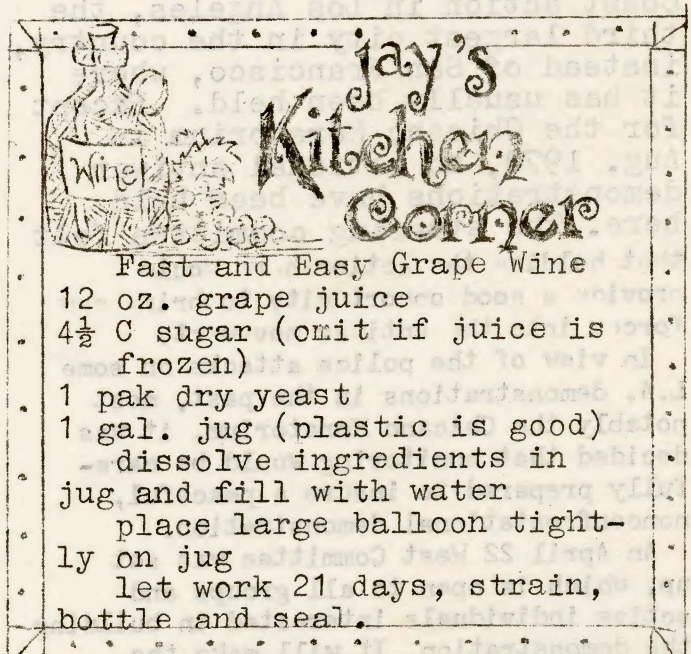 Jay's
Kitchen
Corner
Wine
Fast and Easy Grape Wine
12 oz. grape juice
4½ C sugar (omit if juice is
frozen)
1 pak dry yeast
1 gal. jug (plastic is good)
dissolve ingredients in
jug and fill with water
place large balloon tight-
ly on jug
let work 21 days, strain,
bottle and seal.